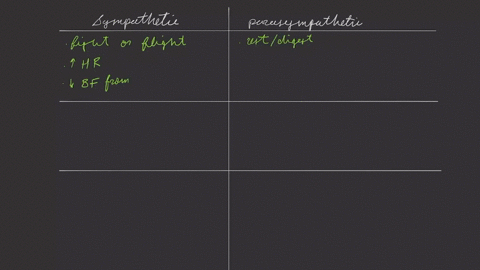 Sympathetic
parasympathetic
· fight or flight
· rest/digest
· ↑ HR
· ↓ BF from